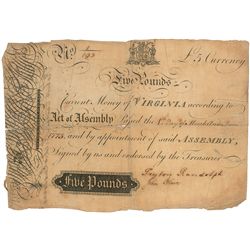 No. L 5 Currency
Five Pounds
Current Money of VIRGINIA according to
Act of Assembly passed the
1775, and by appointment of said ASSEMBLY,
Signed by us and endorsed by the Treasurer
Peyton Randolph
Five Pounds